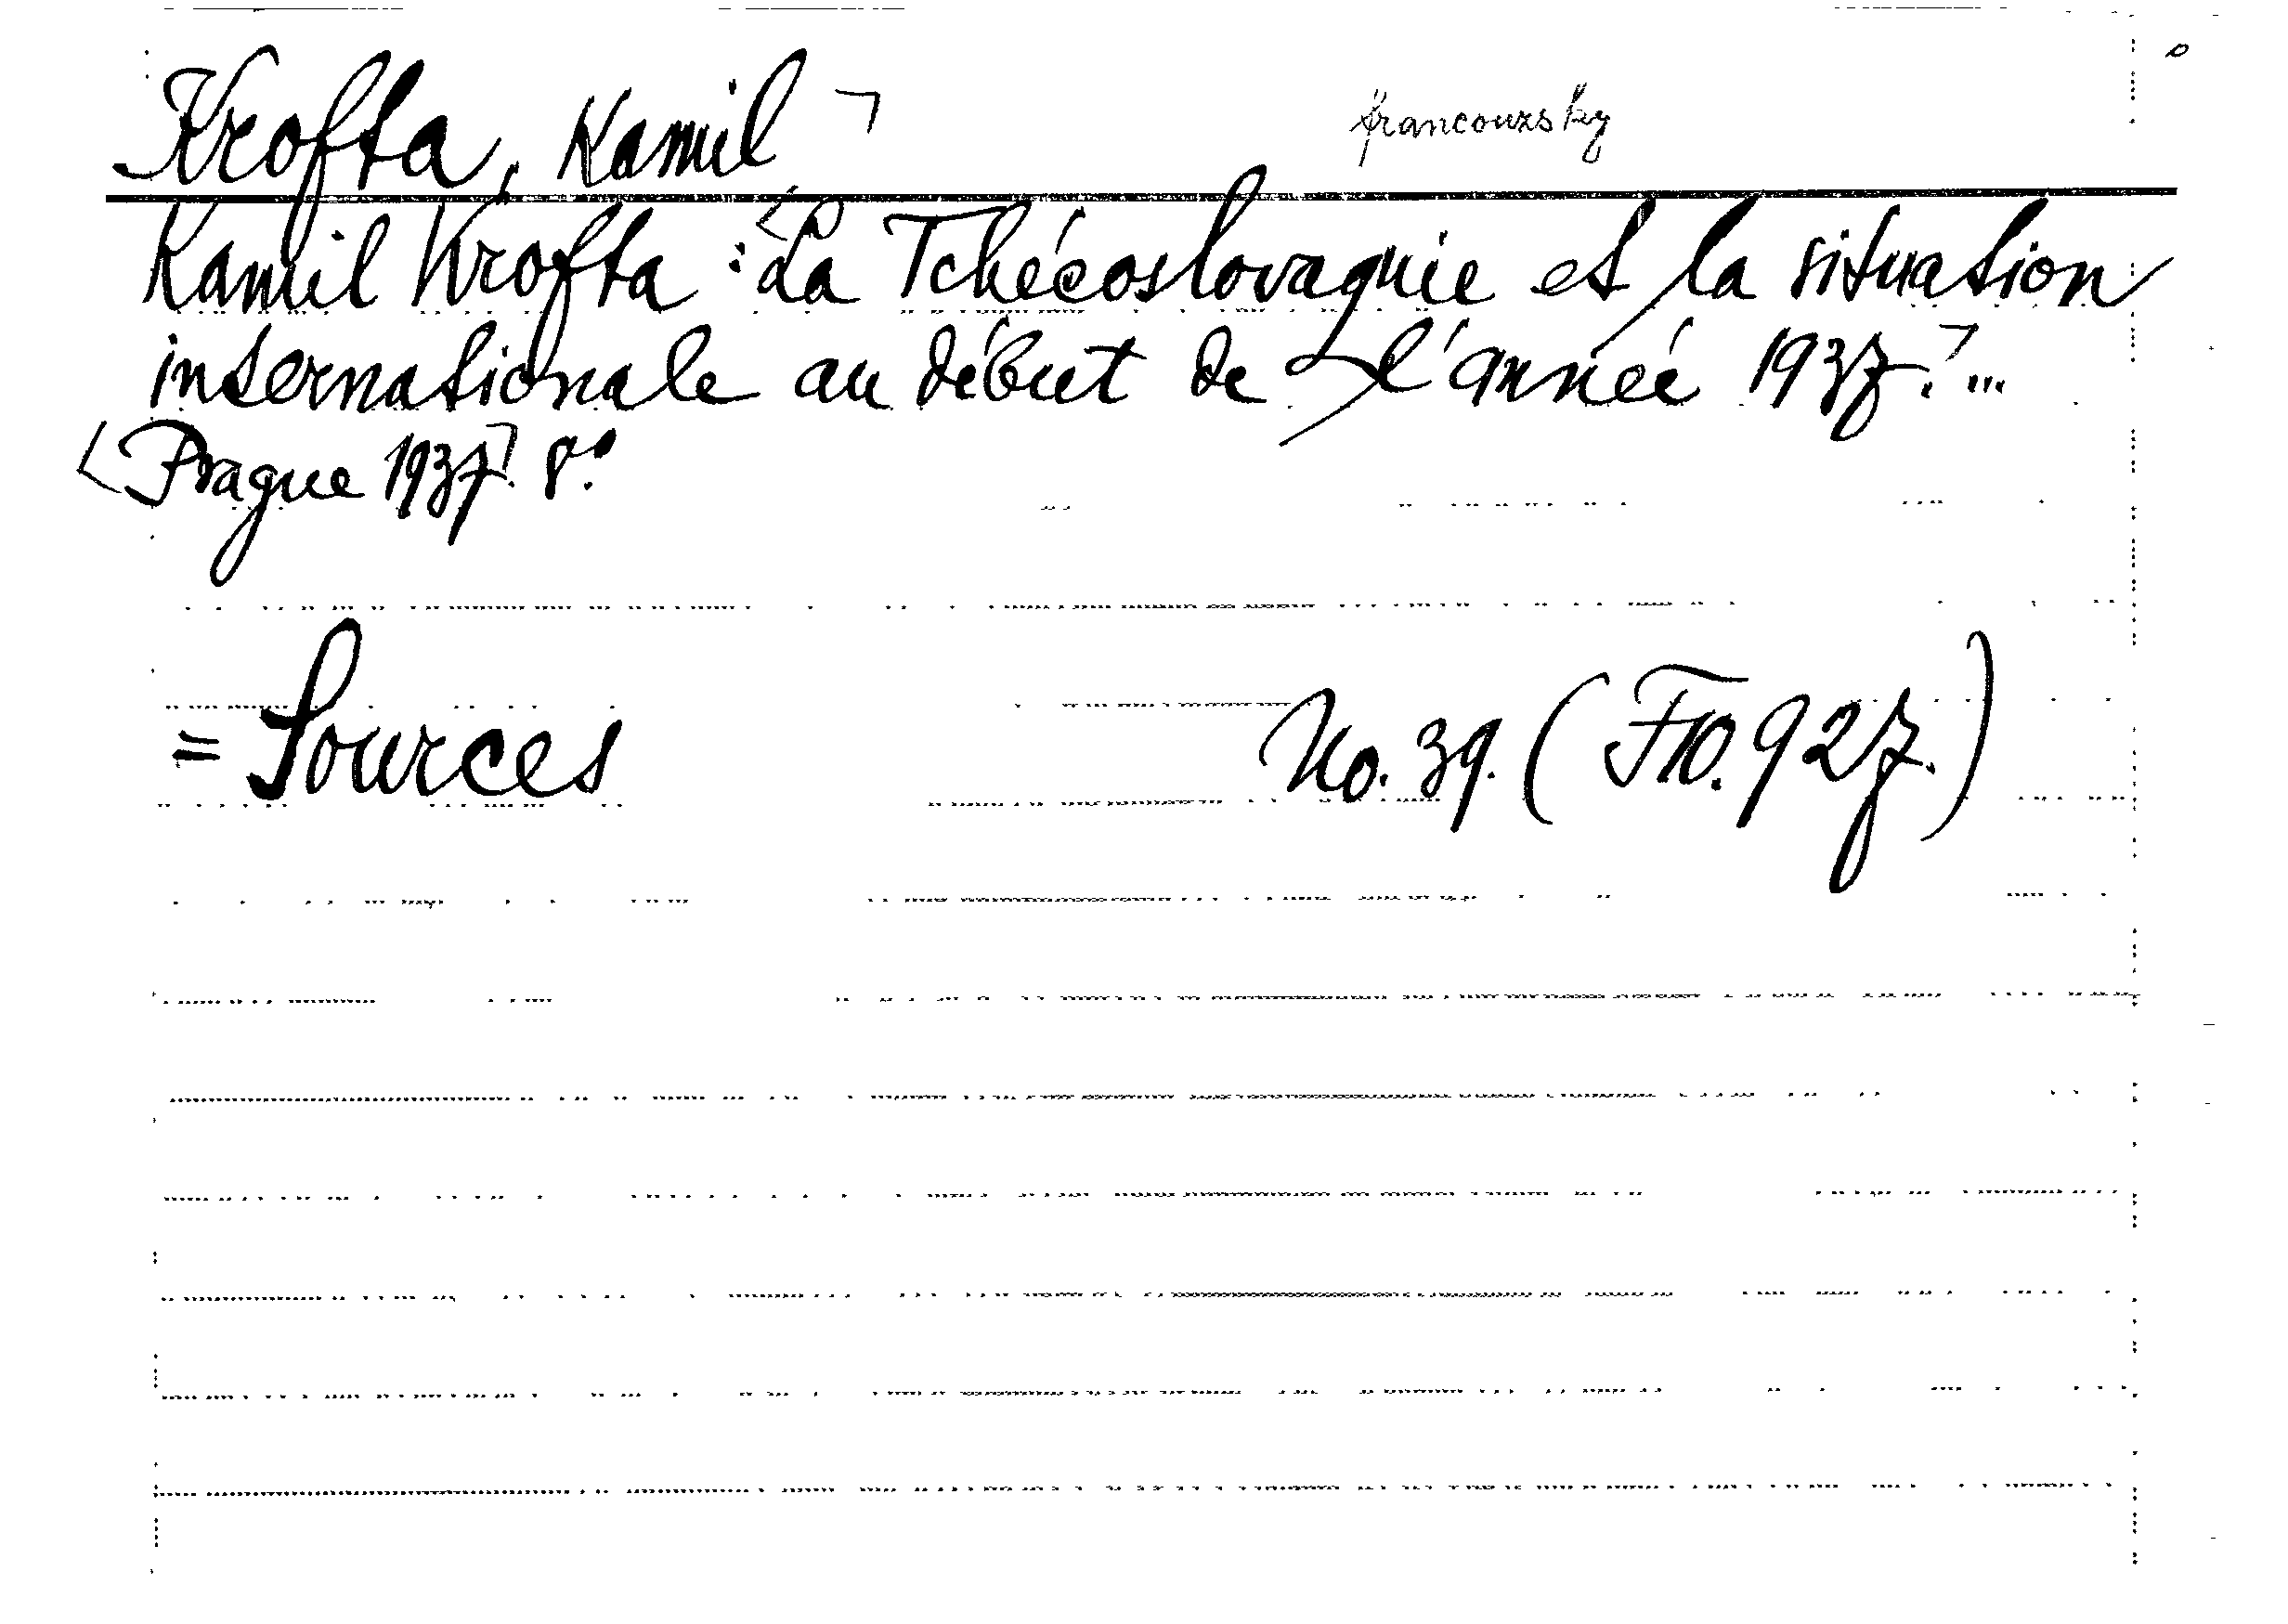 Krofta, Kamil francouzsky
Kamil Krofta: La Tchécoslovaquie et la situation
internationale au début de l'année 1937. ...
Prague 1937. 8°.
= Sources No. 39. (F10.927.)